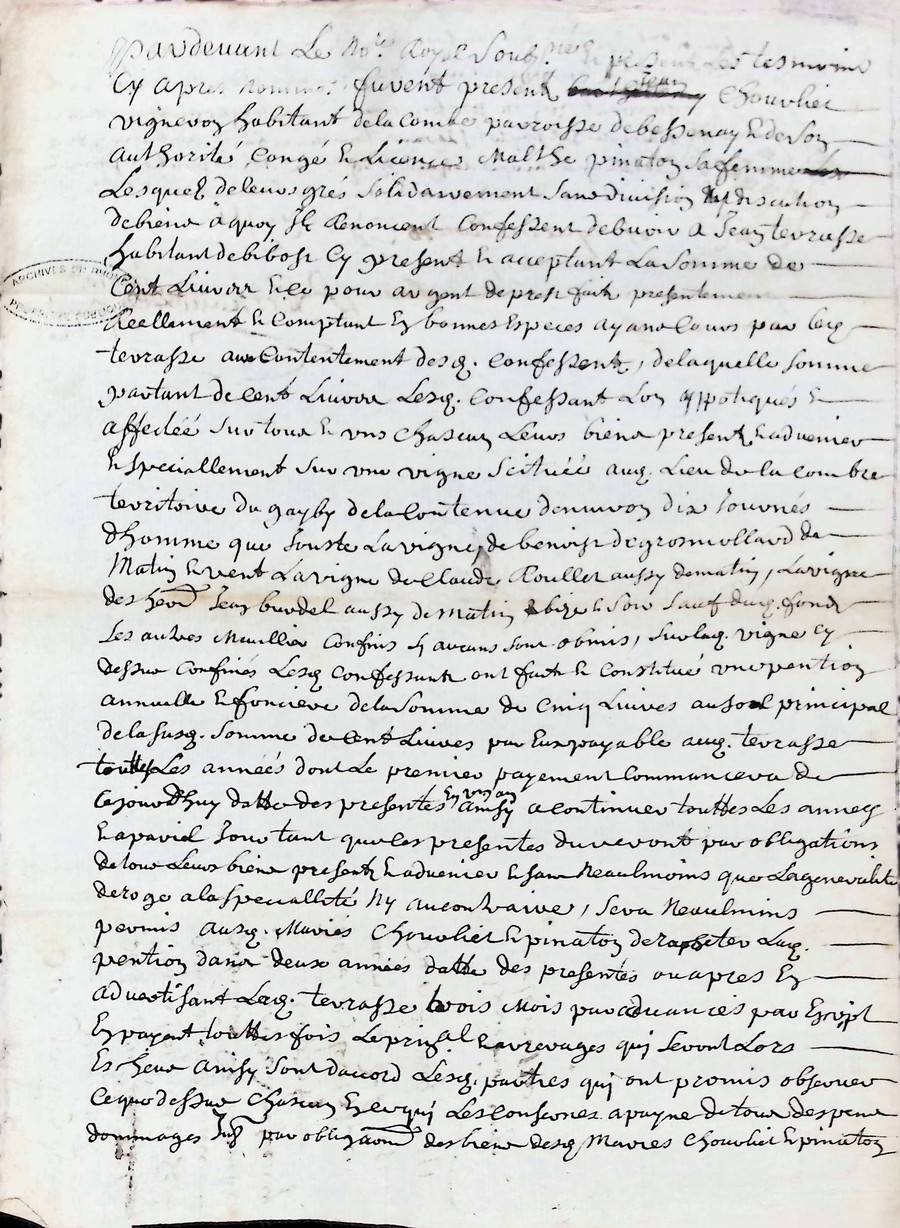 Pardevant Le No.re Royal Soub.né & présens Les tesmoins
Cy apres nommés furent presentz Jean Chouvliet
vigneron habitant de la Combe parroisse de bessenay & de son
Authorité Congé & Licence Malthe pinaton Sa femme
Lesquelz de leurs grés Solidairement Sans division discution
de biens à quoy Ilz Renoncent Confessent debvoir a Jean terrasse
habitant de bibost Cy present & acceptant La Somme de
Cent Livres & ce pour argent de prest fait presentement
Reellement & Comptant En bonnes Especes ayans Cours par led
terrasse au Contentement desq. Confessentz, de laquelle Somme
partant de Cent Livres Lesq. Confessant Lon yppotiqués &
affectée Sur tous & uns Chascun Leurs biens presentz & advenier
& speciallement Sur une vigne Scituée auq. Lieu de la Combe
territoire du gayby de la Contenue denviron dix Journés
dhomme que Jouste La vigne de benoist degrosmollard de
Matin & vent La vigne de Claude Roullet aussy de matin, La vigne
des heors Jean burdel aussy de Matin bize & Soir Sauf dudq. fondz
Les autres Meillieu Confins Sy aucuns Sont obmis, Sur laq. vigne Cy
dessus Confinés Lesq Confessants ont fait & Constitué une pention
annuelle & fonciere de la Somme de Cinq Livres au Sol principal
de la Susq. Somme de Cent Livres par Eux payable auq. terrasse
touttes Les années dont Le premier payement Commancera de
Cejourdhuy datte des presentes En un an ainsy a continuer touttes Les annees
& a pareil Jour tant que les presentes dureront par obligations
de tous Leurs biens presentz & advenier & sans Neaulmoins que La generalité
deroge a la speciallité Ny au contraire, Sera Neaulmins
permis ausq. Mariés Chouvliet & pinaton de rapheter Laq.
pention dans deux années datte des presentes ou apres En
advertisant Leq. terrasse trois Mois par advances par Escript
En payant touttes fois Le prin.al & arrerages qui Seront Lors
Es heus Ainsy Sont daccord Lesq. parties qui ont promis observer
Ce que dessus Chascun En ce qui Les Conserne a payne de tous despens
dommages par obligaons des biens desq Maries Chouvliet & pinaton